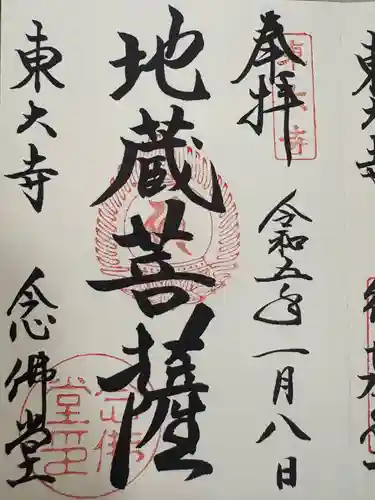 奉拝
令和五年一月八日
地蔵菩薩
東大寺
念佛堂
東大寺
念佛堂印